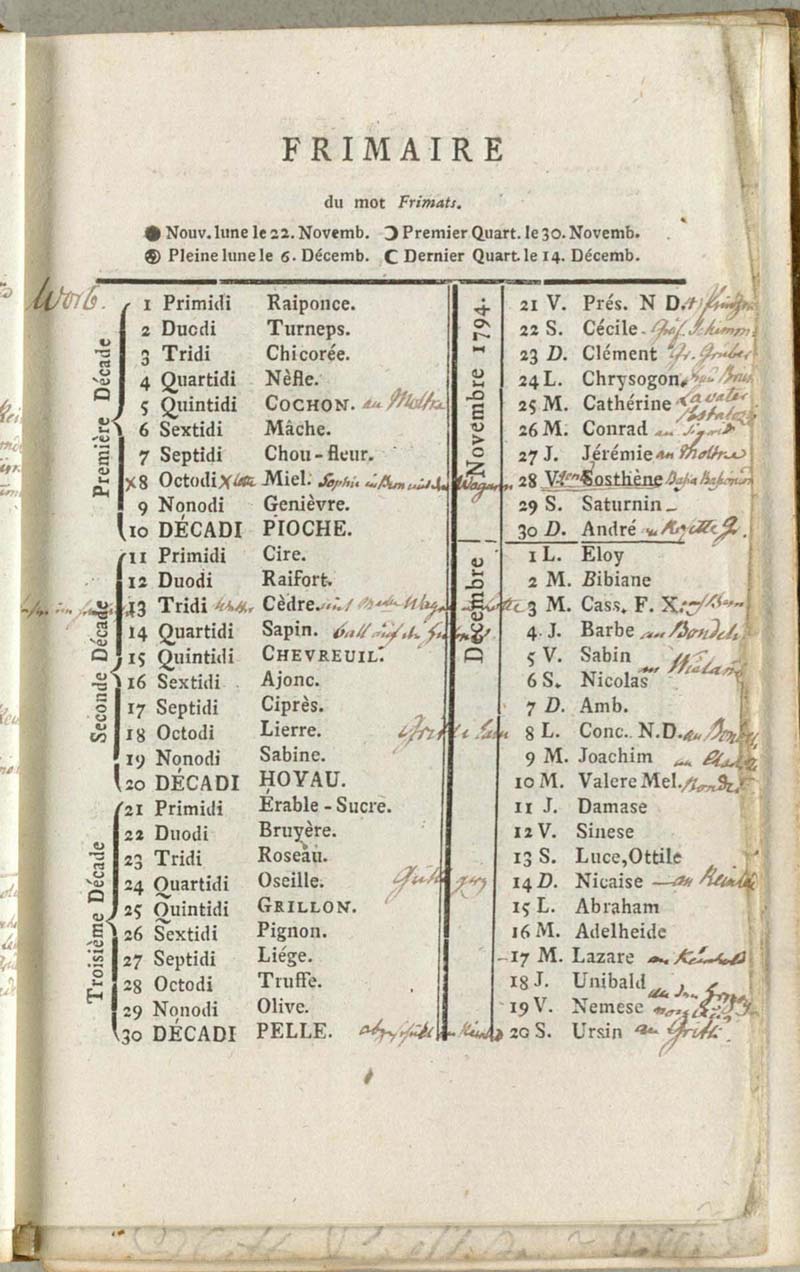 FRIMAIRE
du mot Frimats.
Nouv. lune le 22. Novemb. Premier Quart. le 30. Novemb.
Pleine lune le 6. Décemb. Dernier Quart. le 14. Décemb.
Worb.
Première Décade
1 Primidi Raiponce.
2 Duodi Turneps.
3 Tridi Chicorée.
4 Quartidi Nèfle.
5 Quintidi COCHON. an Moltke
6 Sextidi Mâche.
7 Septidi Chou-fleur.
8 Octodi Miel. Sophie in Bern
9 Nonodi Genièvre.
10 DÉCADI PIOCHE.
Seconde Décade
11 Primidi Cire.
12 Duodi Raifort.
13 Tridi Cèdre.
14 Quartidi Sapin. ball auf
15 Quintidi CHEVREUIL.
16 Sextidi Ajonc.
17 Septidi Ciprès.
18 Octodi Lierre.
19 Nonodi Sabine.
20 DÉCADI HOYAU.
Troisième Décade
21 Primidi Érable-Sucre.
22 Duodi Bruyère.
23 Tridi Roseau.
24 Quartidi Oseille.
25 Quintidi GRILLON.
26 Sextidi Pignon.
27 Septidi Liége.
28 Octodi Truffe.
29 Nonodi Olive.
30 DÉCADI PELLE.
Novembre 1794.
21 V. Prés. N D.
22 S. Cécile
23 D. Clément
24 L. Chrysogon.
25 M. Cathérine Lavater
26 M. Conrad an
27 J. Jérémie an Moltke
28 V. Sosthène
29 S. Saturnin
30 D. André
Décembre
1 L. Eloy
2 M. Bibiane
3 M. Cass. F. X.
4 J. Barbe an
5 V. Sabin
6 S. Nicolas an Wieland
7 D. Amb.
8 L. Conc. N.D. an
9 M. Joachim an
10 M. Valere Mel.
11 J. Damase
12 V. Sinese
13 S. Luce, Ottile
14 D. Nicaise an
15 L. Abraham
16 M. Adelheide
17 M. Lazare an
18 J. Unibald
19 V. Nemese
20 S. Ursin an